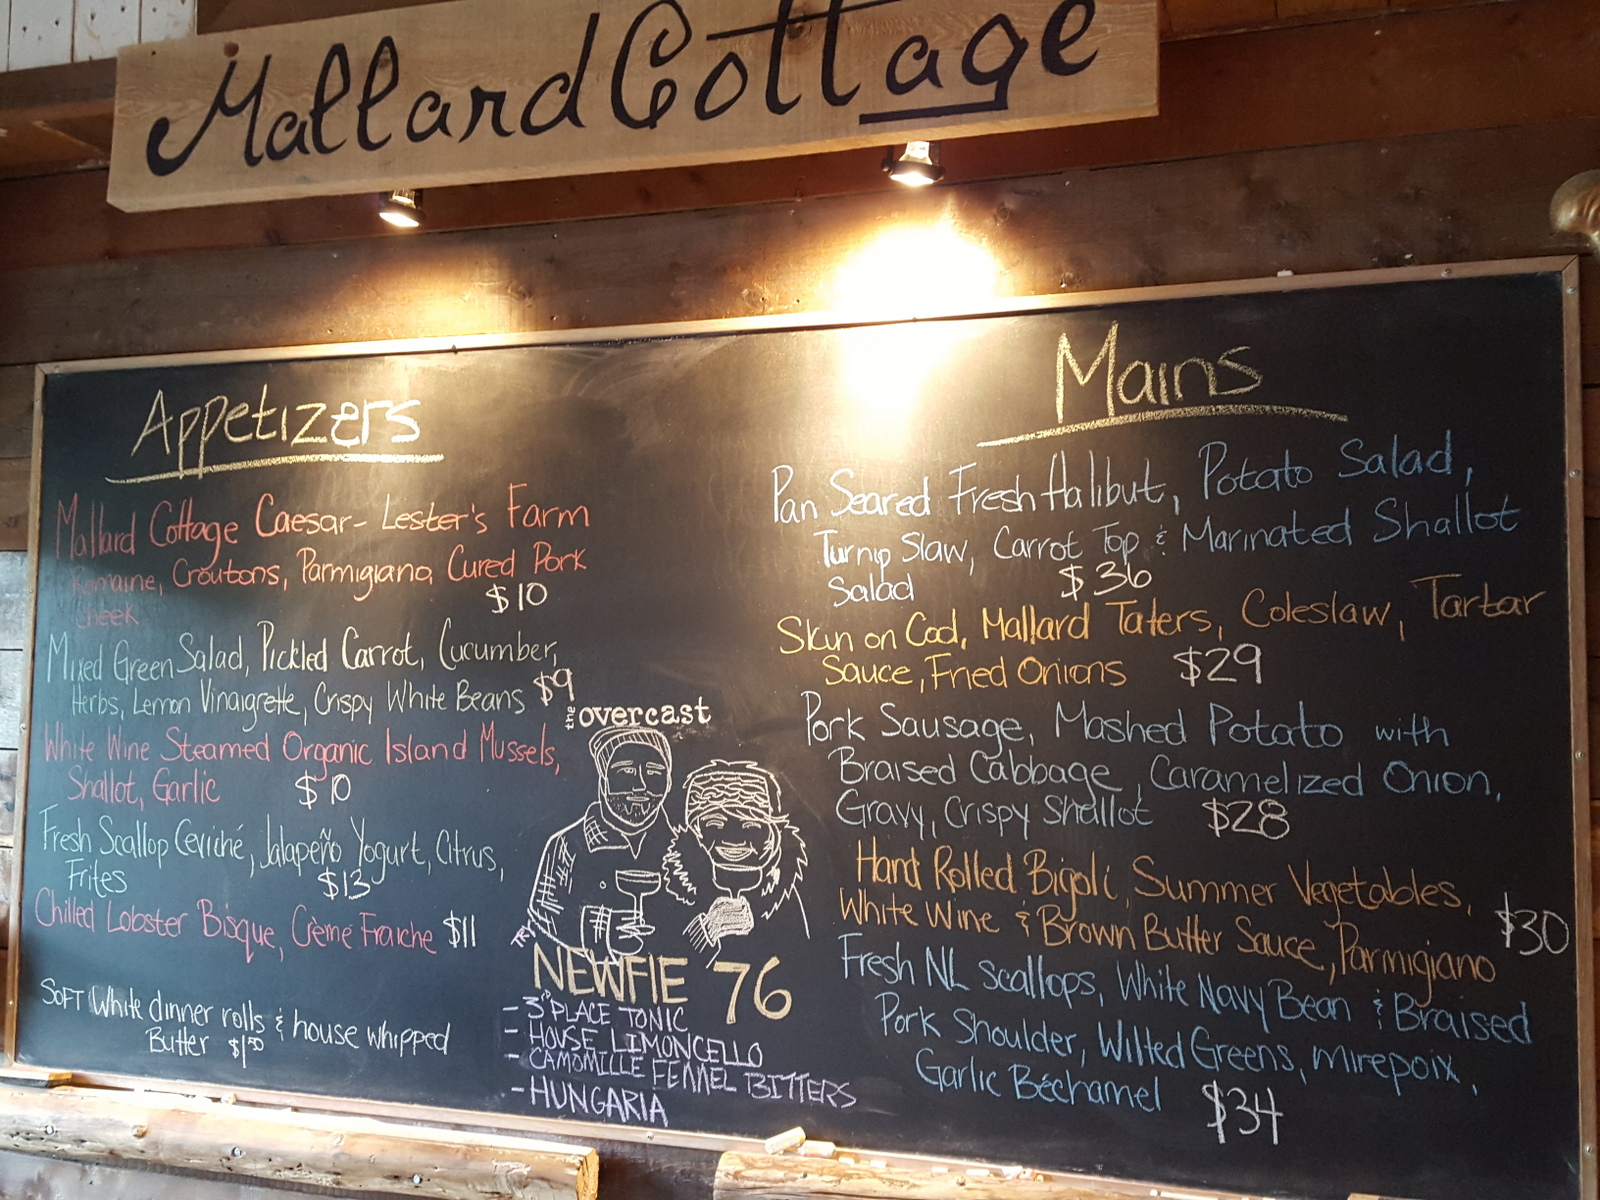 Mallard Cottage
Appetizers
Mallard Cottage Caesar- Lester's Farm
Romaine, Croutons, Parmigiano, Cured Pork
Cheek
$10
Mixed Green Salad, Pickled Carrot, Cucumber,
Herbs, Lemon Vinaigrette, Crispy White Beans $9
White Wine Steamed Organic Island Mussels,
Shallot, Garlic $10
Fresh Scallop Ceviché, Jalapeño Yogurt, Citrus,
Frites $13
Chilled Lobster Bisque, Crème Fraiche $11
SOFT White dinner rolls & house whipped
Butter $1.50
the overcast
TRY
NEWFIE 76
- 3rd PLACE TONIC
- HOUSE LIMONCELLO
- CAMOMILLE FENNEL BITTERS
- HUNGARIA
Mains
Pan Seared Fresh Halibut, Potato Salad,
Turnip Slaw, Carrot Top & Marinated Shallot
Salad $36
Skin on Cod, Mallard Taters, Coleslaw, Tartar
Sauce, Fried Onions $29
Pork Sausage, Mashed Potato with
Braised Cabbage, Caramelized Onion,
Gravy, Crispy Shallot $28
Hand Rolled Bigoli, Summer Vegetables,
White Wine & Brown Butter Sauce, Parmigiano $30
Fresh NL scallops, White Navy Bean & Braised
Pork Shoulder, Wilted Greens, mirepoix,
Garlic Béchamel $34